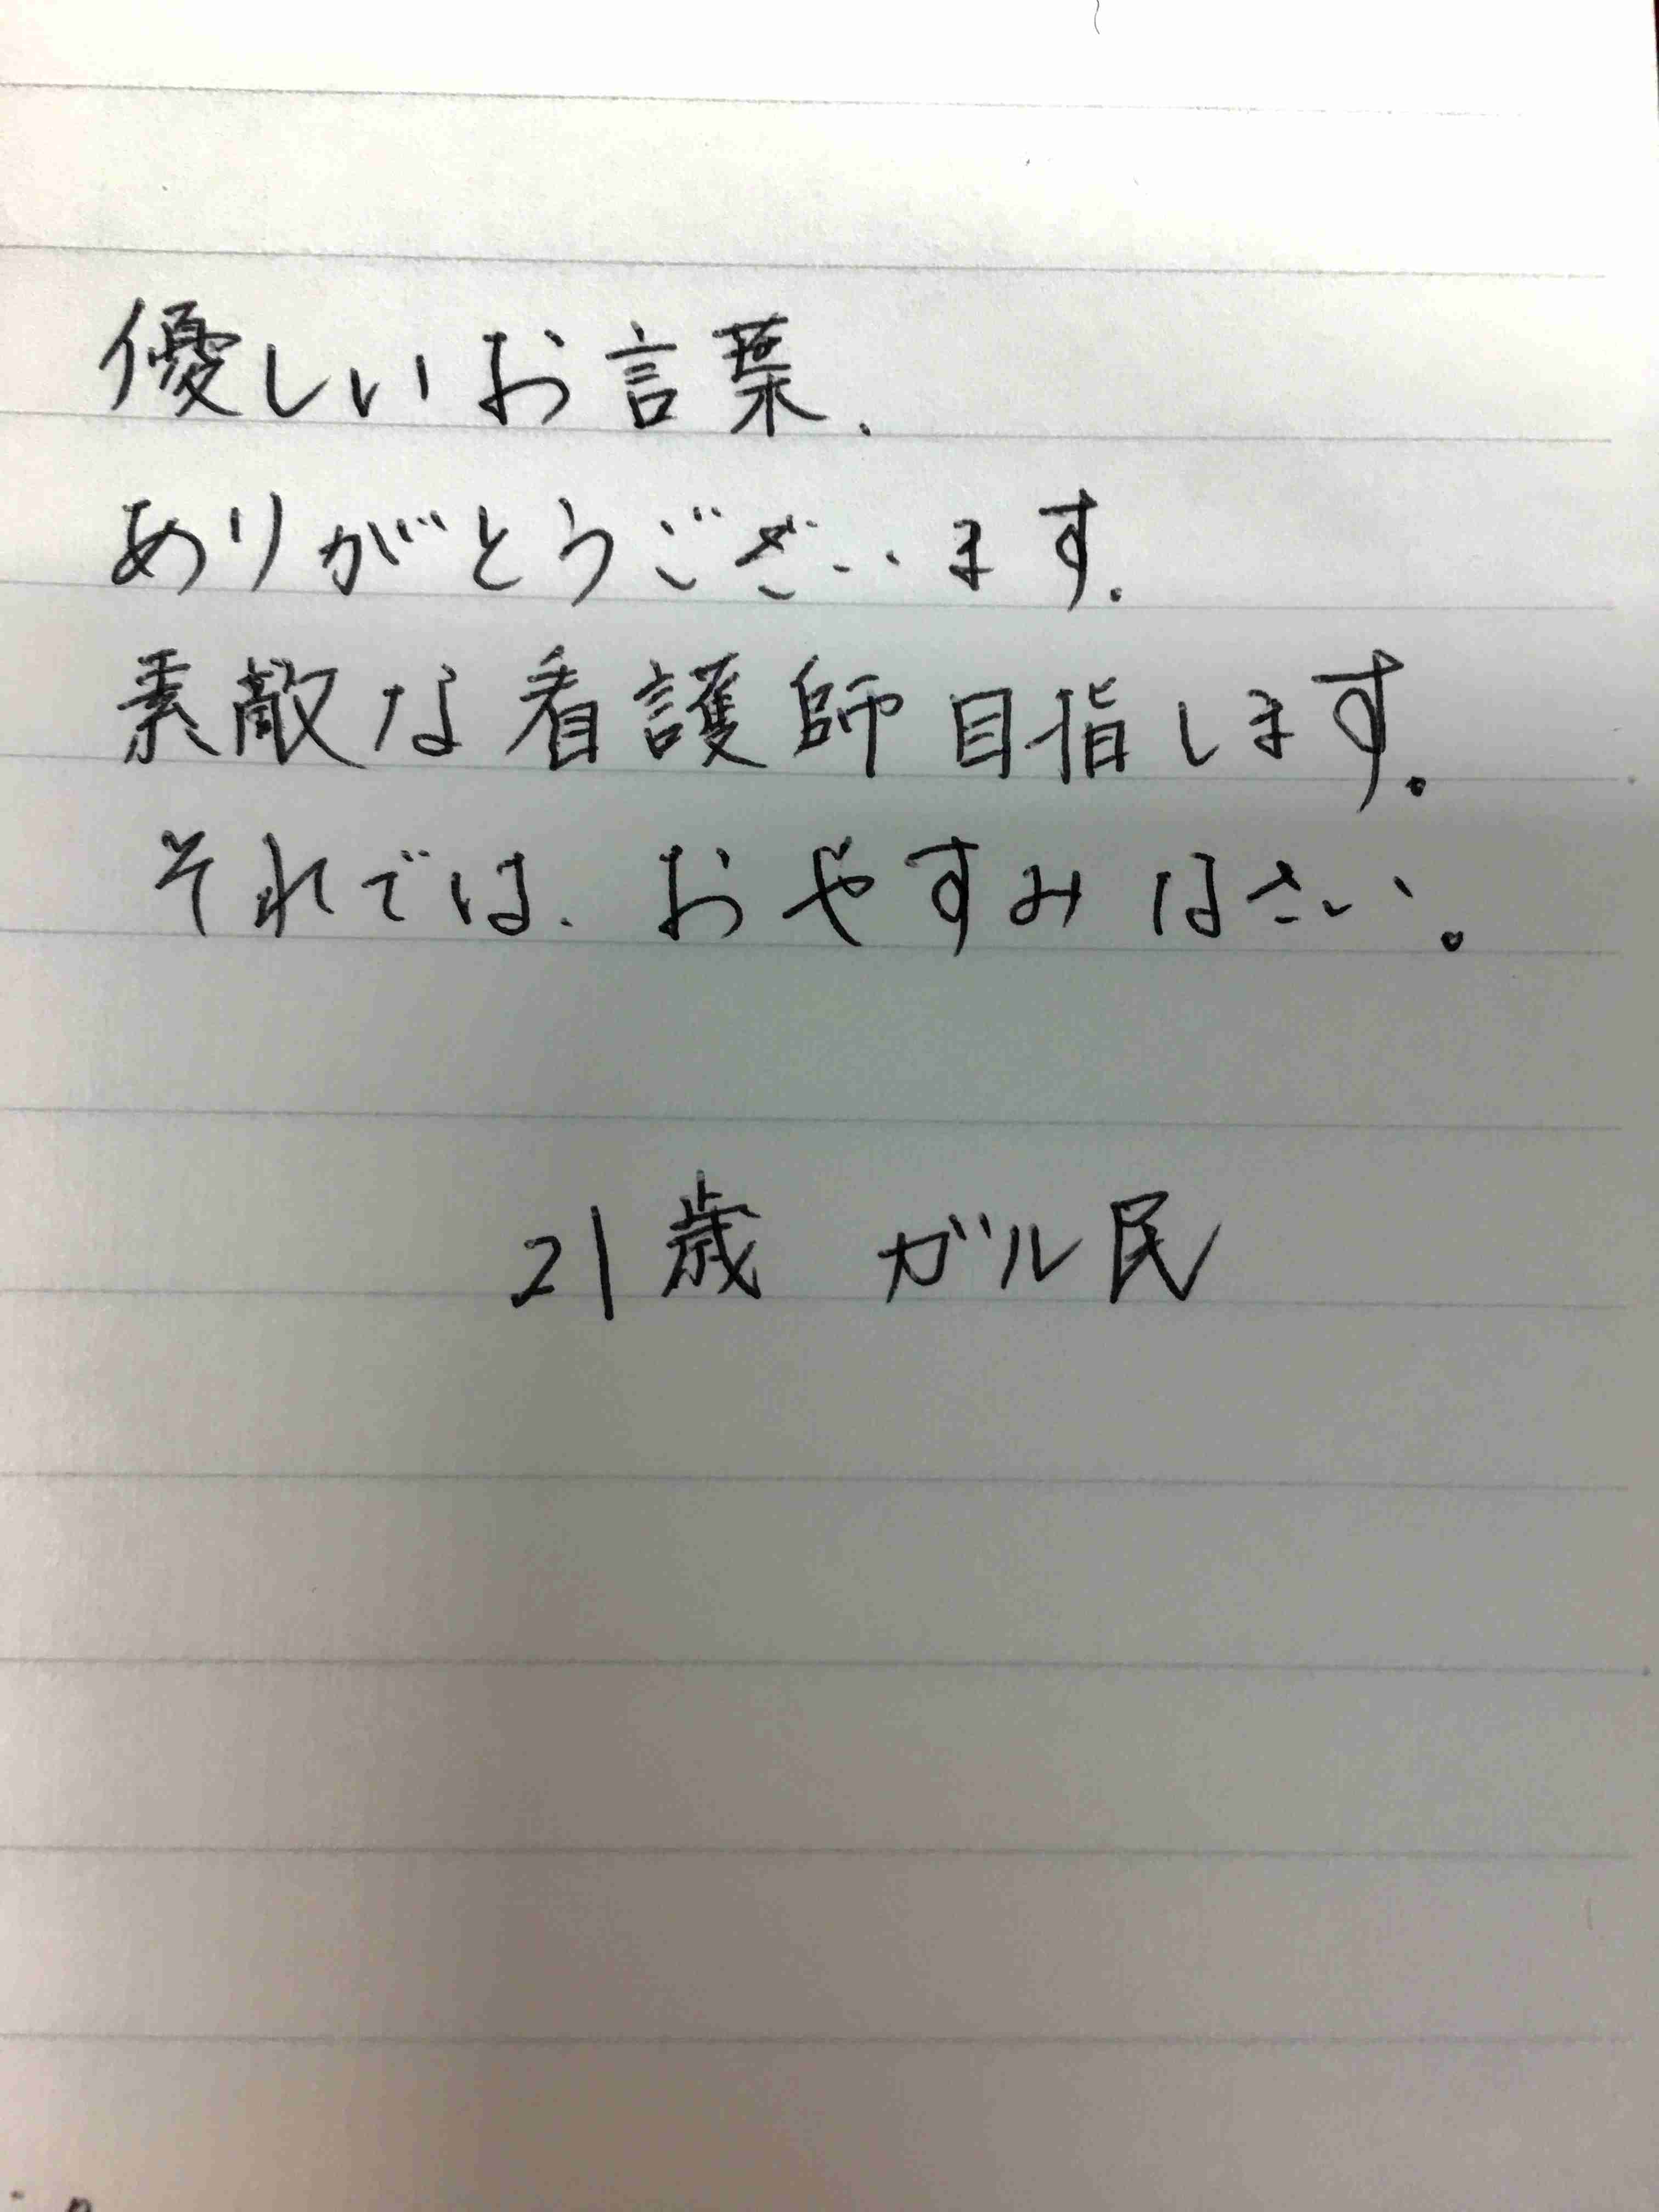 優しいお言葉、
ありがとうございます。
素敵な看護師目指します。
それでは、おやすみなさい。
21歳 ガル民